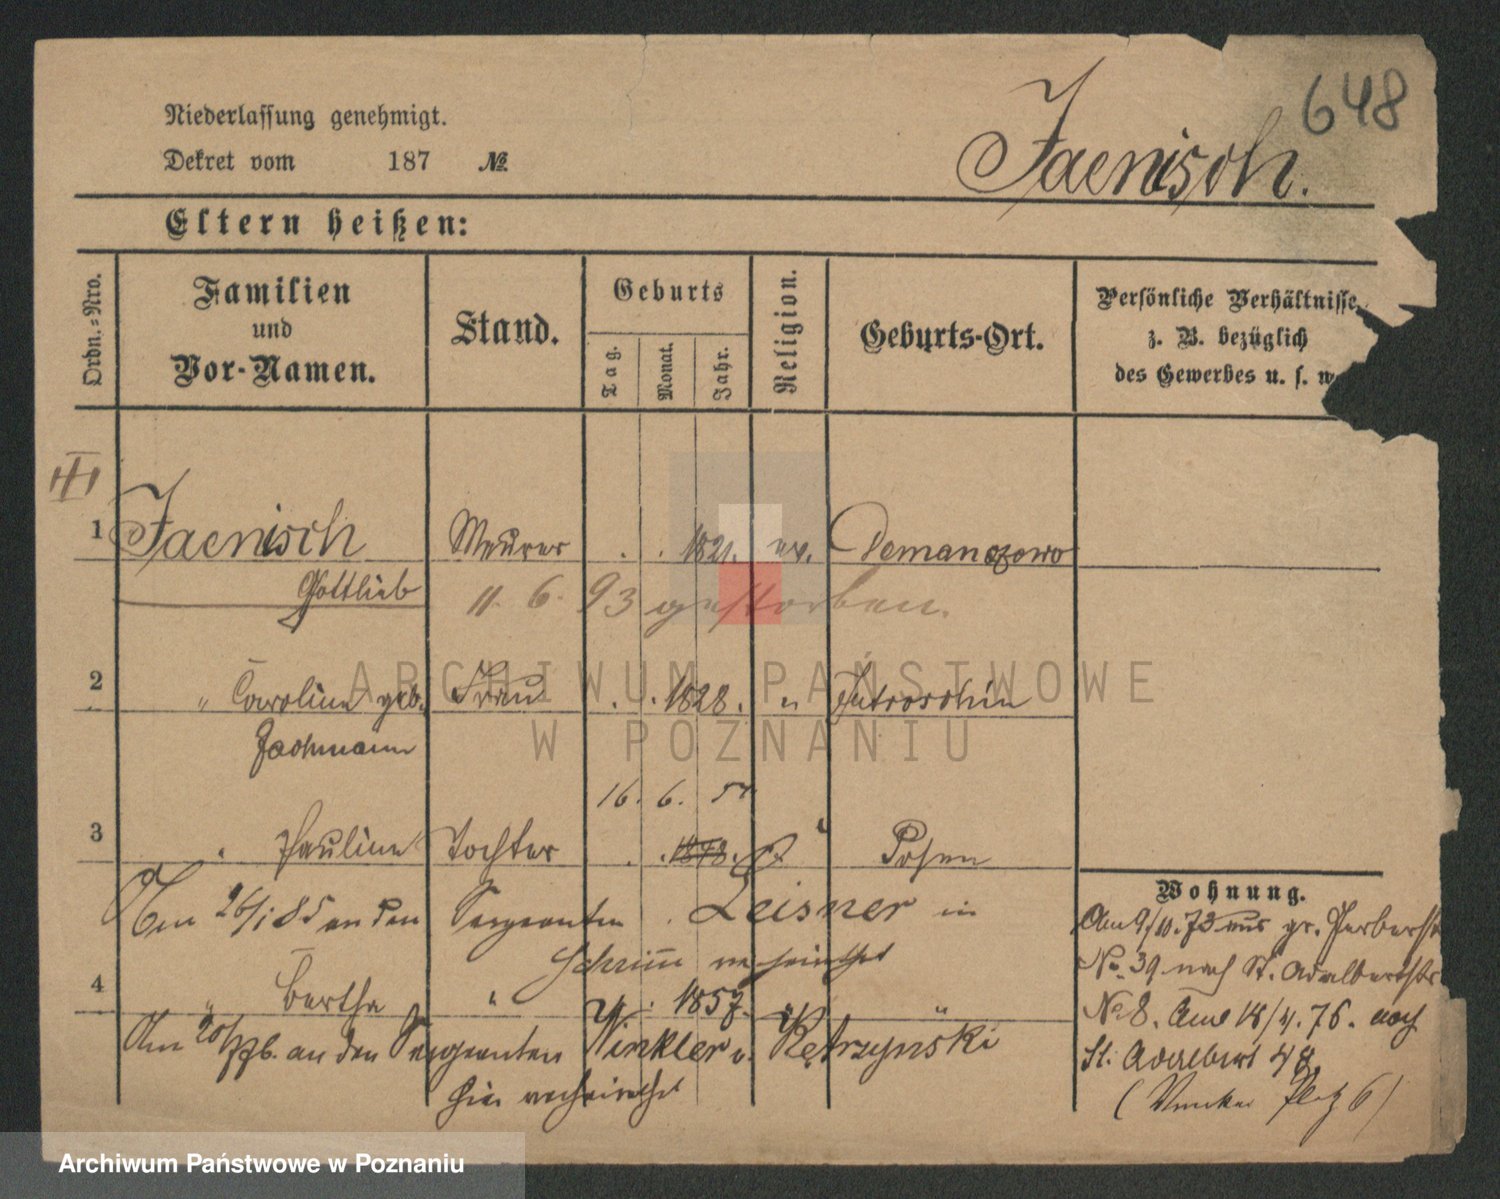 648
Niederlassung genehmigt.
Jaenisch.
Dekret vom 187 №
Eltern heißen:
Ordn.=Nro.
Familien und Vor-Namen.
Stand.
Geburts
Tag.
Monat.
Jahr.
Religion.
Geburts-Ort.
Persönliche Verhältnisse
z. B. bezüglich
des Gewerbes u. s. w
III
1 Jaenisch Maurer . . 1821. ev. Demanczewo
Gottlieb
11. 6. 93 gestorben.
2 " Caroline geb. Frau . . 1828. " Jutroschin
Jachmann
16. 6. 54
3 " Pauline Tochter . . 1848. " Posen
Am 26/1 85 an den Sergeanten Leisner in
Schrimm verheirathet
4 " Bertha " . 1857. " "
Am 20/ 76. an den Sergeanten Winkler v. Kętrzyński
hier verheirathet
Wohnung.
Am 9/10.73 aus gr. Gerberstr
No. 39 nach St. Adalbertstr
No 8. Am 18/4.76. nach
St. Adalbert 48.
( Platz 6)
ARCHIWUM PAŃSTWOWE
W POZNANIU
Archiwum Państwowe w Poznaniu